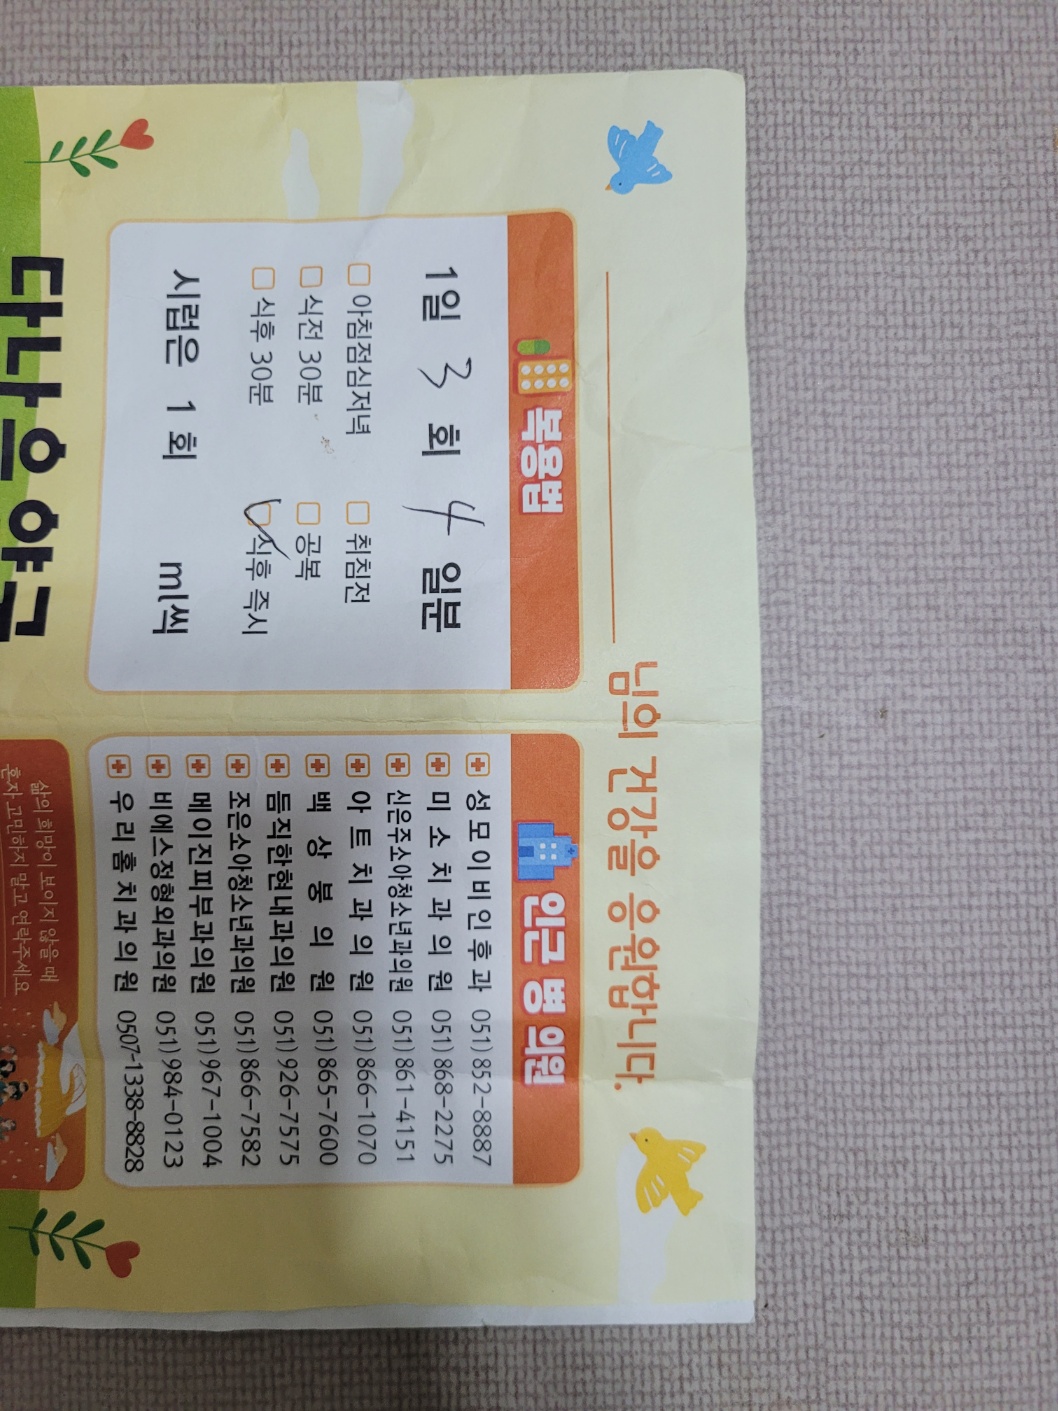 님의 건강을 응원합니다.
복용법
1일 3 회 4 일분
아침점심저녁 취침전
식전 30분 공복
식후 30분 식후 즉시
시럽은 1 회 ml씩
인근 병 의원
성모이비인후과 051)852-8887
미소치과의원 051)868-2275
신은주소아청소년과의원 051)861-4151
아트치과의원 051)866-1070
백상봉의원 051)865-7600
듬직한현내과의원 051)926-7575
조은소아청소년과의원 051)866-7582
메이진피부과의원 051)967-1004
비에스정형외과의원 051)984-0123
우리홈치과의원 0507-1338-8828
다나을약국
삶의 희망이 보이지 않을 때
혼자 고민하지 말고 연락주세요